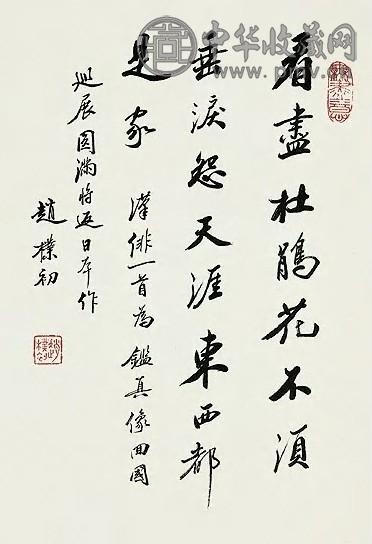 中华收藏网
看盡杜鵑花不須
垂淚怨天涯東西都
是家 漢俳一首為鑑真像回國
巡展圓滿将返日本作
趙樸初